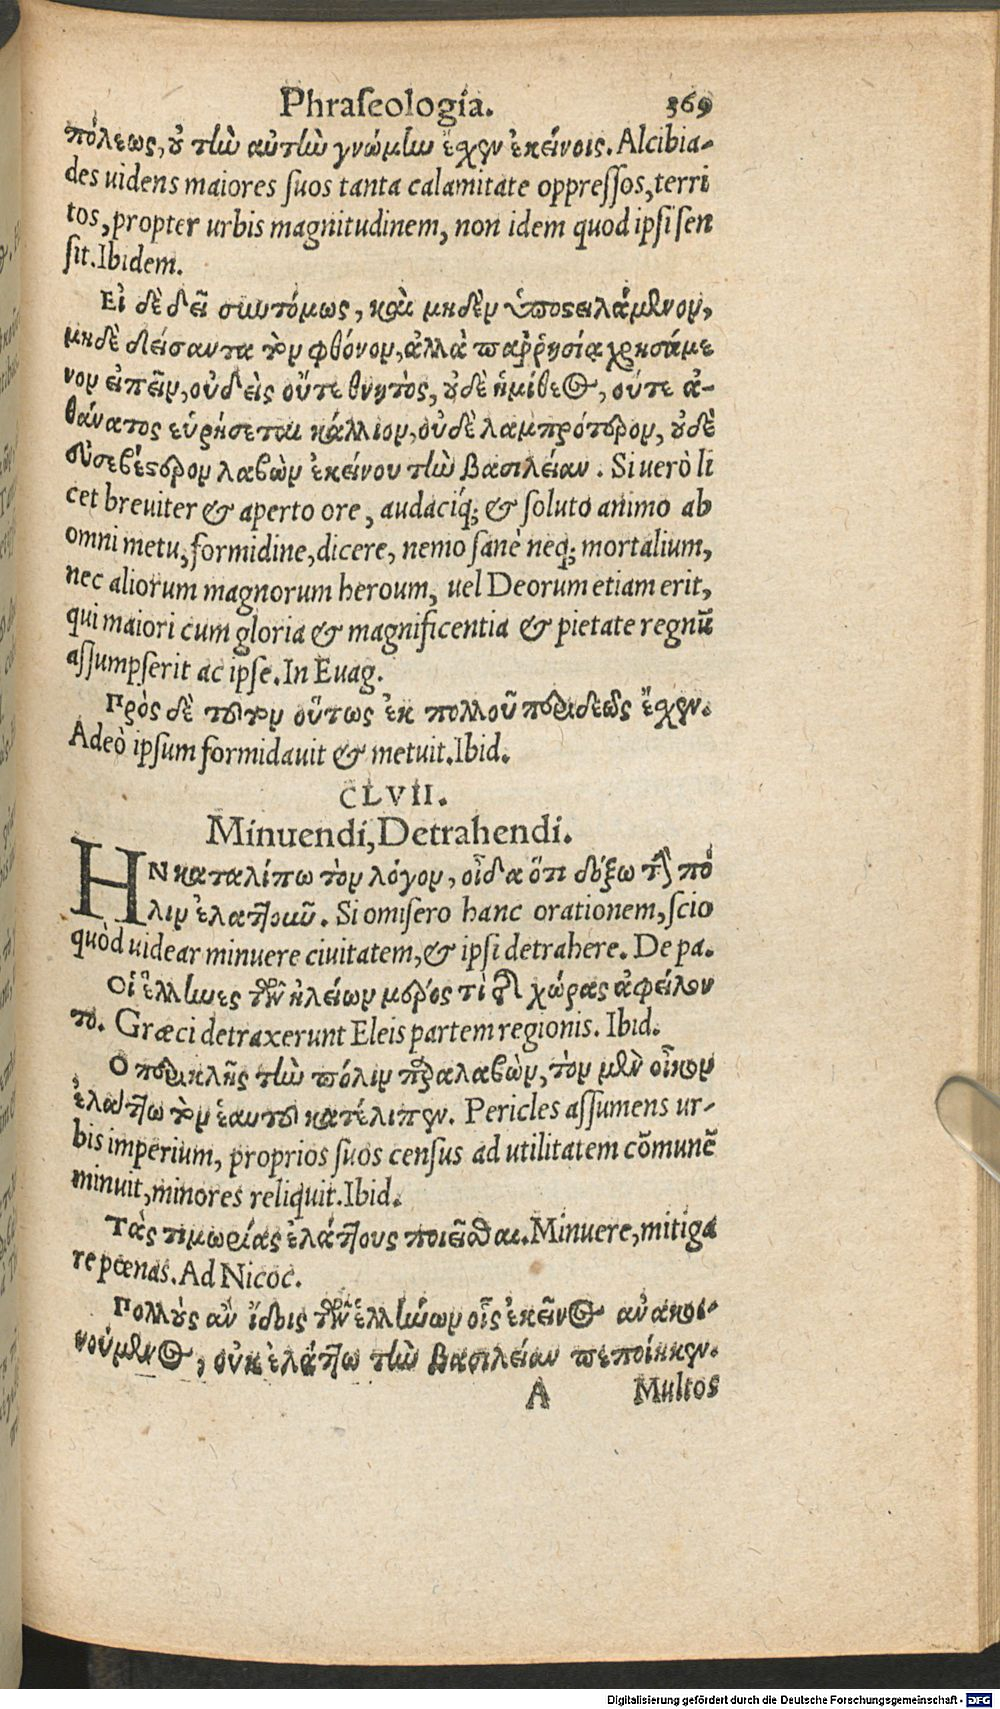 Phraſeologia. 369
πόλεως, ȣ τὴν αὐτὴν γνώμην ἔχειν ἐκείνοις. Alcibia-
des uidens maiores ſuos tanta calamitate oppreſſos, terri
tos, propter urbis magnitudinem, non idem quod ipſi ſen
ſit. Ibidem.
Εἰ δὲ δεῖ συντόμως, καὶ μηδὲν ὑποστειλάμενον,
μηδὲ δείσαντα τὸν φθόνον, ἀλλὰ παῤῥησίᾳ χρησάμε
νον εἰπεῖν, οὐδεὶς οὔτε θνητὸς, ȣδὲ ἡμίθεος, οὔτε ἀ-
θάνατος εὑρήσεται κάλλιον, οὐδὲ λαμπρότερον, ȣδὲ
εὐσεβέστερον λαβὼν ἐκείνου τὴν βασιλείαν. Si uerò li
cet breuiter & aperto ore, audaciq́; & ſoluto animo ab
omni metu, formidine, dicere, nemo ſanè neq; mortalium,
nec aliorum magnorum heroum, uel Deorum etiam erit,
qui maiori cum gloria & magnificentia & pietate regnũ
aſſumpſerit ac ipſe. In Euag.
Πρὸς δὲ τοῦτον οὕτως ἐκ πολλοῦ περιδεῶς ἔχειν.
Adeò ipſum formidauit & metuit. Ibid.
CLVII.
Minuendi, Detrahendi.
ΗΝ καταλίπω τὸν λόγον, οἶδα ὅτι δόξω τὴν πό
λιν ἐλαττοῦν. Si omiſero hanc orationem, ſcio
quòd uidear minuere ciuitatem, & ipſi detrahere. De pa.
Οἱ ἕλληνες τῶν ἠλείων μέρος τὶ τῆς χώρας ἀφείλον
το. Græci detraxerunt Eleis partem regionis. Ibid.
Ο περικλῆς τὴν πόλιν παραλαβὼν, τὸν μὲν οἶκον
ἐλάττω τὸν ἑαυτοῦ κατέλιπεν. Pericles aſſumens ur-
bis imperium, proprios ſuos cenſus ad utilitatem cõmunẽ
minuit, minores reliquit. Ibid.
Τὰς τιμωρίας ἐλάττους ποιεῖσθαι. Minuere, mitiga
re pœnas. Ad Nicoc.
Πολλȣς ἂν ἴδοις τῶν ἑλλήνων οἷς ἐκεῖνος ἀνακοι-
νούμενος, οὐκ ἐλάττω τὴν βασιλείαν πεποίηκεν.
A Multos
Digitalisierung gefördert durch die Deutsche Forschungsgemeinschaft - DFG